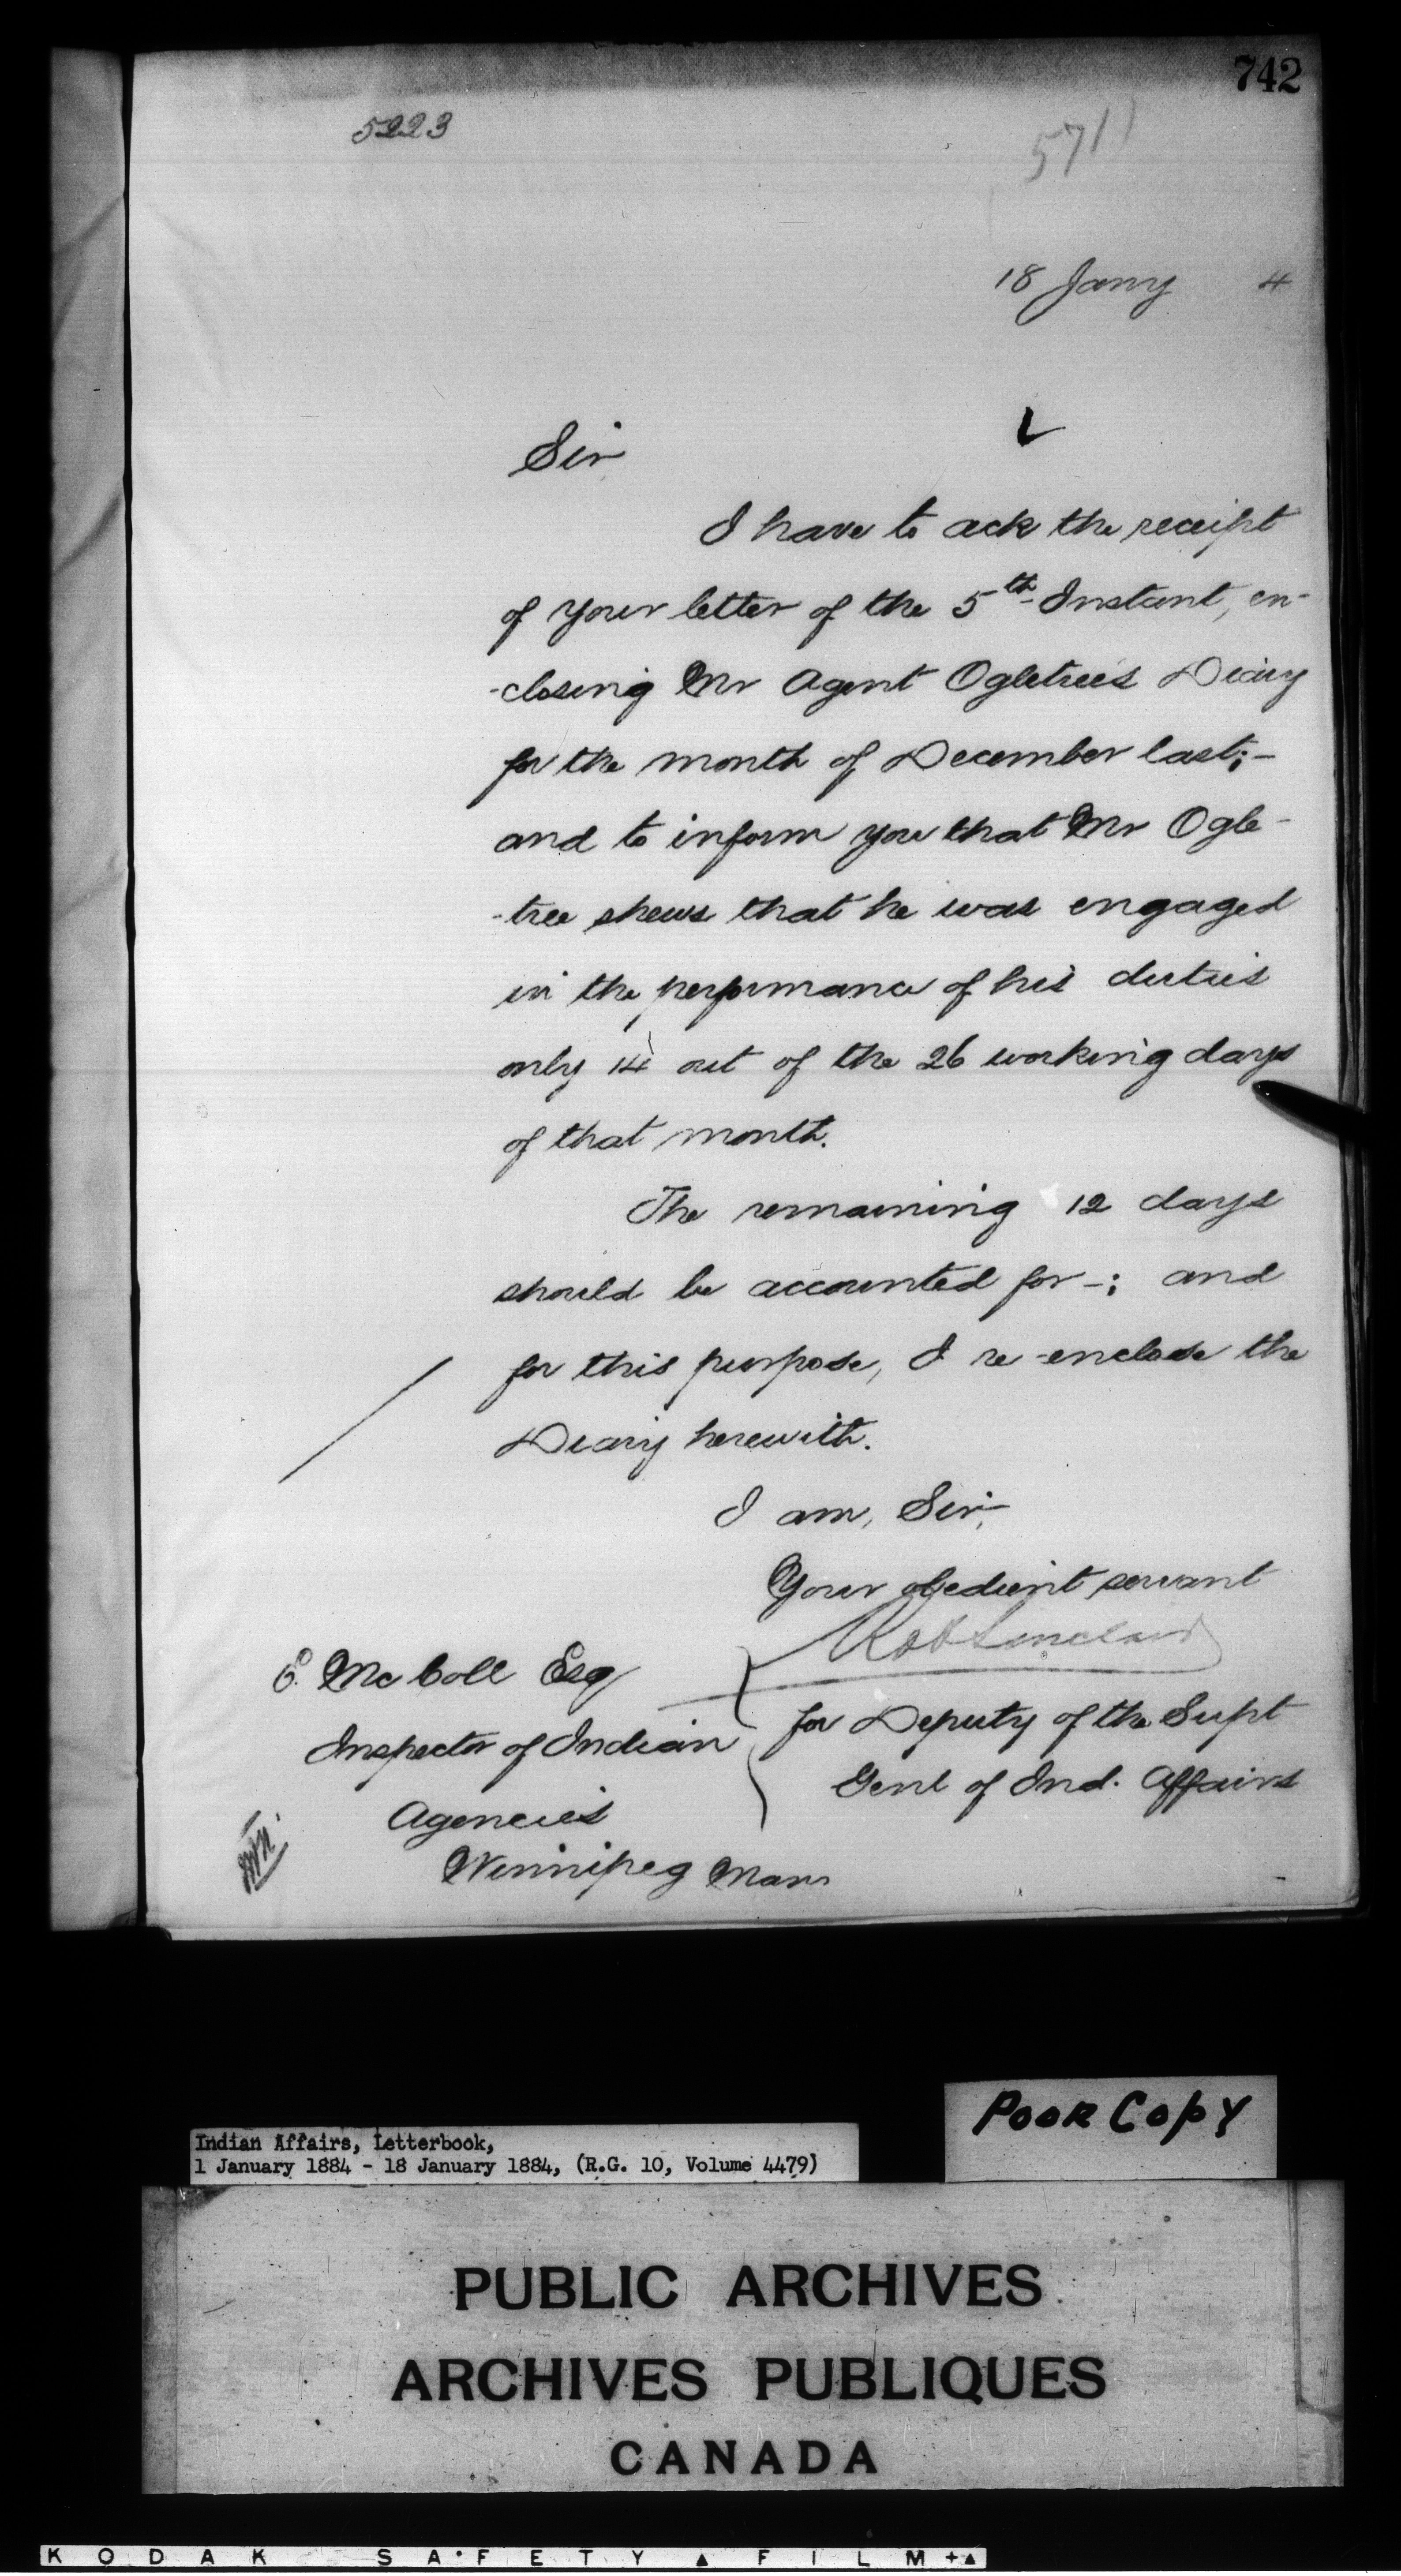 742
5223
5711
18 Jany 4
Sir
I have to ack the receipt
of your letter of the 5th Instant, en-
-closing Mr Agent Ogletree's Diary
for the month of December last;-
and to inform you that Mr Ogle-
-tree shews that he was engaged
in the performance of his duties
only 14 out of the 26 working days
of that month.
The remaining 12 days
should be accounted for -; and
for this purpose, I re-enclose the
Diary herewith.
I am, Sir,
Your obedient servant
Robt Sinclair
for Deputy of the Supt
Genl of Ind. Affairs
E. McColl Esq
Inspector of Indian
Agencies
Winnipeg Man
Poor Copy
Indian Affairs, Letterbook,
1 January 1884 - 18 January 1884, (R.G. 10, Volume 4479)
PUBLIC ARCHIVES
ARCHIVES PUBLIQUES
CANADA
KODAK SAFETY FILM